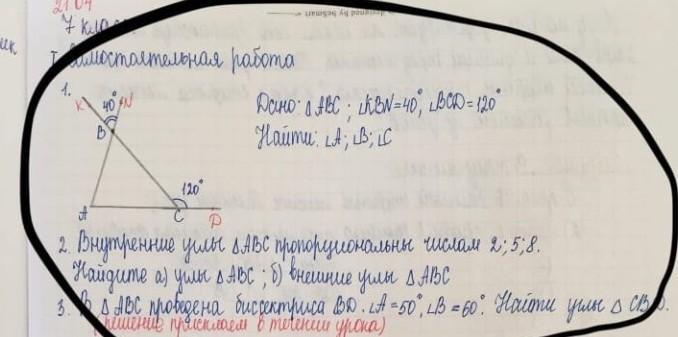 21.04
7 клас
Самостоятельная работа
1.
K
40°
N
B
A
120°
C
D
Дано: △ABC; ∠KBN=40°; ∠BCD=120°
Найти: ∠A; ∠B; ∠C
2. Внутренние углы △ABC пропорциональны числам 2; 5; 8.
Найдите а) углы △ABC; б) внешние углы △ABC
3. В △ABC проведена биссектриса BD. ∠A=50°, ∠B=60°. Найти углы △CBD.
(решение присылаем в течении урока)
designed by beSmart